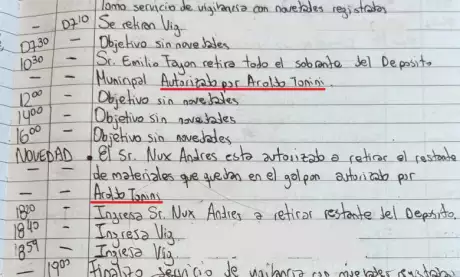 Tomo servicio de vigilancia con novedades registradas
- 0710 Se retiran Vig.
0730 - Objetivo sin novedades
1030 - Sr. Emilio Fayon retira todo el sobrante del Deposito
- - Municipal Autorizado por Araldo Tonini.
1200 - Objetivo sin novedades
1400 - Objetivo sin novedades
1600 - Objetivo sin novedades
NOVEDAD • El Sr. Nux Andres esta autorizado a retirar el restante
- - de materiales que quedan en el galpon autorizado por
- - Araldo Tonini
1820 - Ingresa Sr. Nux Andres a retirar restante del Deposito.
1840 - Ingresa Vig
1859 - Ingresa Vig
- 1900 Finalizo servicio de vigilancia con novedades registradas